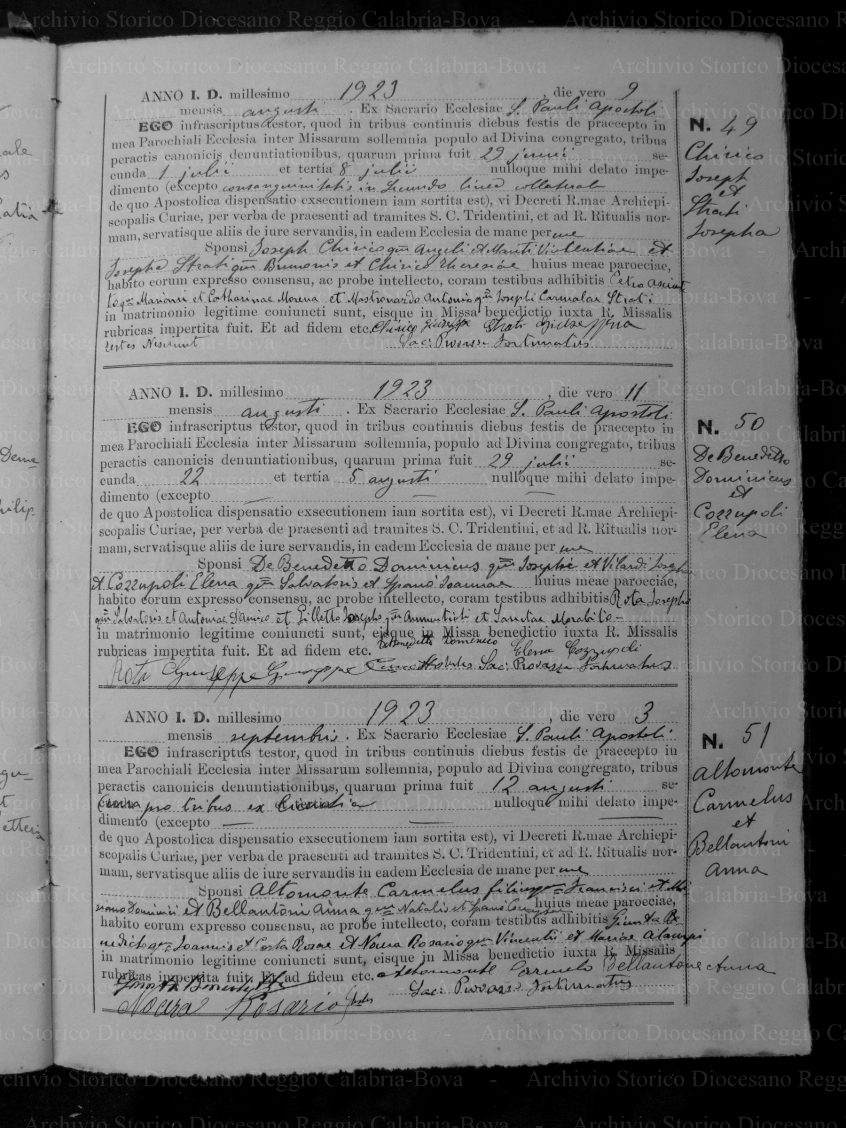 ANNO I. D. millesimo 1923, die vero 9
mensis augusti. Ex Sacrario Ecclesiae S. Pauli Apostoli
EGO infrascriptus testor, quod in tribus continuis diebus festis de praecepto in
mea Parochiali Ecclesia inter Missarum sollemnia populo ad Divina congregato, tribus
peractis canonicis denuntiationibus, quarum prima fuit 29 junii se-
cunda 1 julii et tertia 8 julii nulloque mihi delato impe-
dimento (excepto consanguinitatis in secundo linea collaterali
de quo Apostolica dispensatio exsecutionem iam sortita est), vi Decreti R.mae Archiepi-
scopalis Curiae, per verba de praesenti ad tramites S. C. Tridentini, et ad R. Ritualis nor-
mam, servatisque aliis de iure servandis, in eadem Ecclesia de mane per me
Sponsi Joseph Chirico qm Angeli et Violentiae et
Josepha Strati qm Brunonis et Chirico Theresiae huius meae paroeciae,
habito eorum expresso consensu, ac probe intellecto, coram testibus adhibitis
qm Mariani et Catharinae Morena et Mastronardo Antonio qm Josephi Carmelae Strati
in matrimonio legitime coniuncti sunt, eisque in Missa benedictio iuxta R. Missalis
rubricas impertita fuit. Et ad fidem etc. Chirico Giuseppe Strati Giuseppina
testes Nesciunt Sac: Fortunatus
N. 49
Chirico
Joseph
et
Strati
Josepha
ANNO I. D. millesimo 1923, die vero 11
mensis augusti. Ex Sacrario Ecclesiae S. Pauli Apostoli
EGO infrascriptus testor, quod in tribus continuis diebus festis de praecepto in
mea Parochiali Ecclesia inter Missarum sollemnia, populo ad Divina congregato, tribus
peractis canonicis denuntiationibus, quarum prima fuit 29 julii se-
cunda 22 et tertia 5 augusti nulloque mihi delato impe-
dimento (excepto — — —
de quo Apostolica dispensatio exsecutionem iam sortita est), vi Decreti R.mae Archiepi-
scopalis Curiae, per verba de praesenti ad tramites S. C. Tridentini, et ad R. Ritualis nor-
mam, servatisque aliis de iure servandis, in eadem Ecclesia de mane per me
Sponsi De Benedetto Dominicus qm Josephi et Vilardi Josepha
et Cozzupoli Elena qm Salvatoris et Spanò Joannae huius meae paroeciae,
habito eorum expresso consensu, ac probe intellecto, coram testibus adhibitis Rota Josepho
qm Salvatoris et Antoniae D'Amico et Josepho qm Annuntiati et Sanctae Morabito
in matrimonio legitime coniuncti sunt, eisque in Missa benedictio iuxta R. Missalis
rubricas impertita fuit. Et ad fidem etc. De Benedetto Domenico Elena Cozzupoli
Rota Giuseppe Giuseppe Sac: Fortunatus
N. 50
De Benedetto
Dominicus
et
Cozzupoli
Elena
ANNO I. D. millesimo 1923, die vero 3
mensis septembris. Ex Sacrario Ecclesiae S. Pauli Apostoli
EGO infrascriptus testor, quod in tribus continuis diebus festis de praecepto in
mea Parochiali Ecclesia inter Missarum sollemnia, populo ad Divina congregato, tribus
peractis canonicis denuntiationibus, quarum prima fuit 12 augusti se-
cunda pro tribus ex nulloque mihi delato impe-
dimento (excepto — — —
de quo Apostolica dispensatio exsecutionem iam sortita est), vi Decreti R.mae Archiepi-
scopalis Curiae, per verba de praesenti ad tramites S. C. Tridentini, et ad R. Ritualis nor-
mam, servatisque aliis de iure servandis in eadem Ecclesia de mane per me
Sponsi Altomonte Carmelus filius qm Francisci et
et Bellantoni Anna qm Natalis et Spanò huius meae paroeciae,
habito eorum expresso consensu, ac probe intellecto, coram testibus adhibitis Giunta Be
nedicto qm Joannis et Costa Rosae et Nocera Rosario qm Vincentii et Mariae Alampi
in matrimonio legitime coniuncti sunt, eisque in Missa benedictio iuxta R. Missalis
rubricas impertita fuit. Et ad fidem etc. Altomonte Carmelo Bellantone Anna
Giunta Sac: Fortunatus
Nocera Rosario
N. 51
Altomonte
Carmelus
et
Bellantoni
Anna
Archivio Storico Diocesano Reggio Calabria-Bova